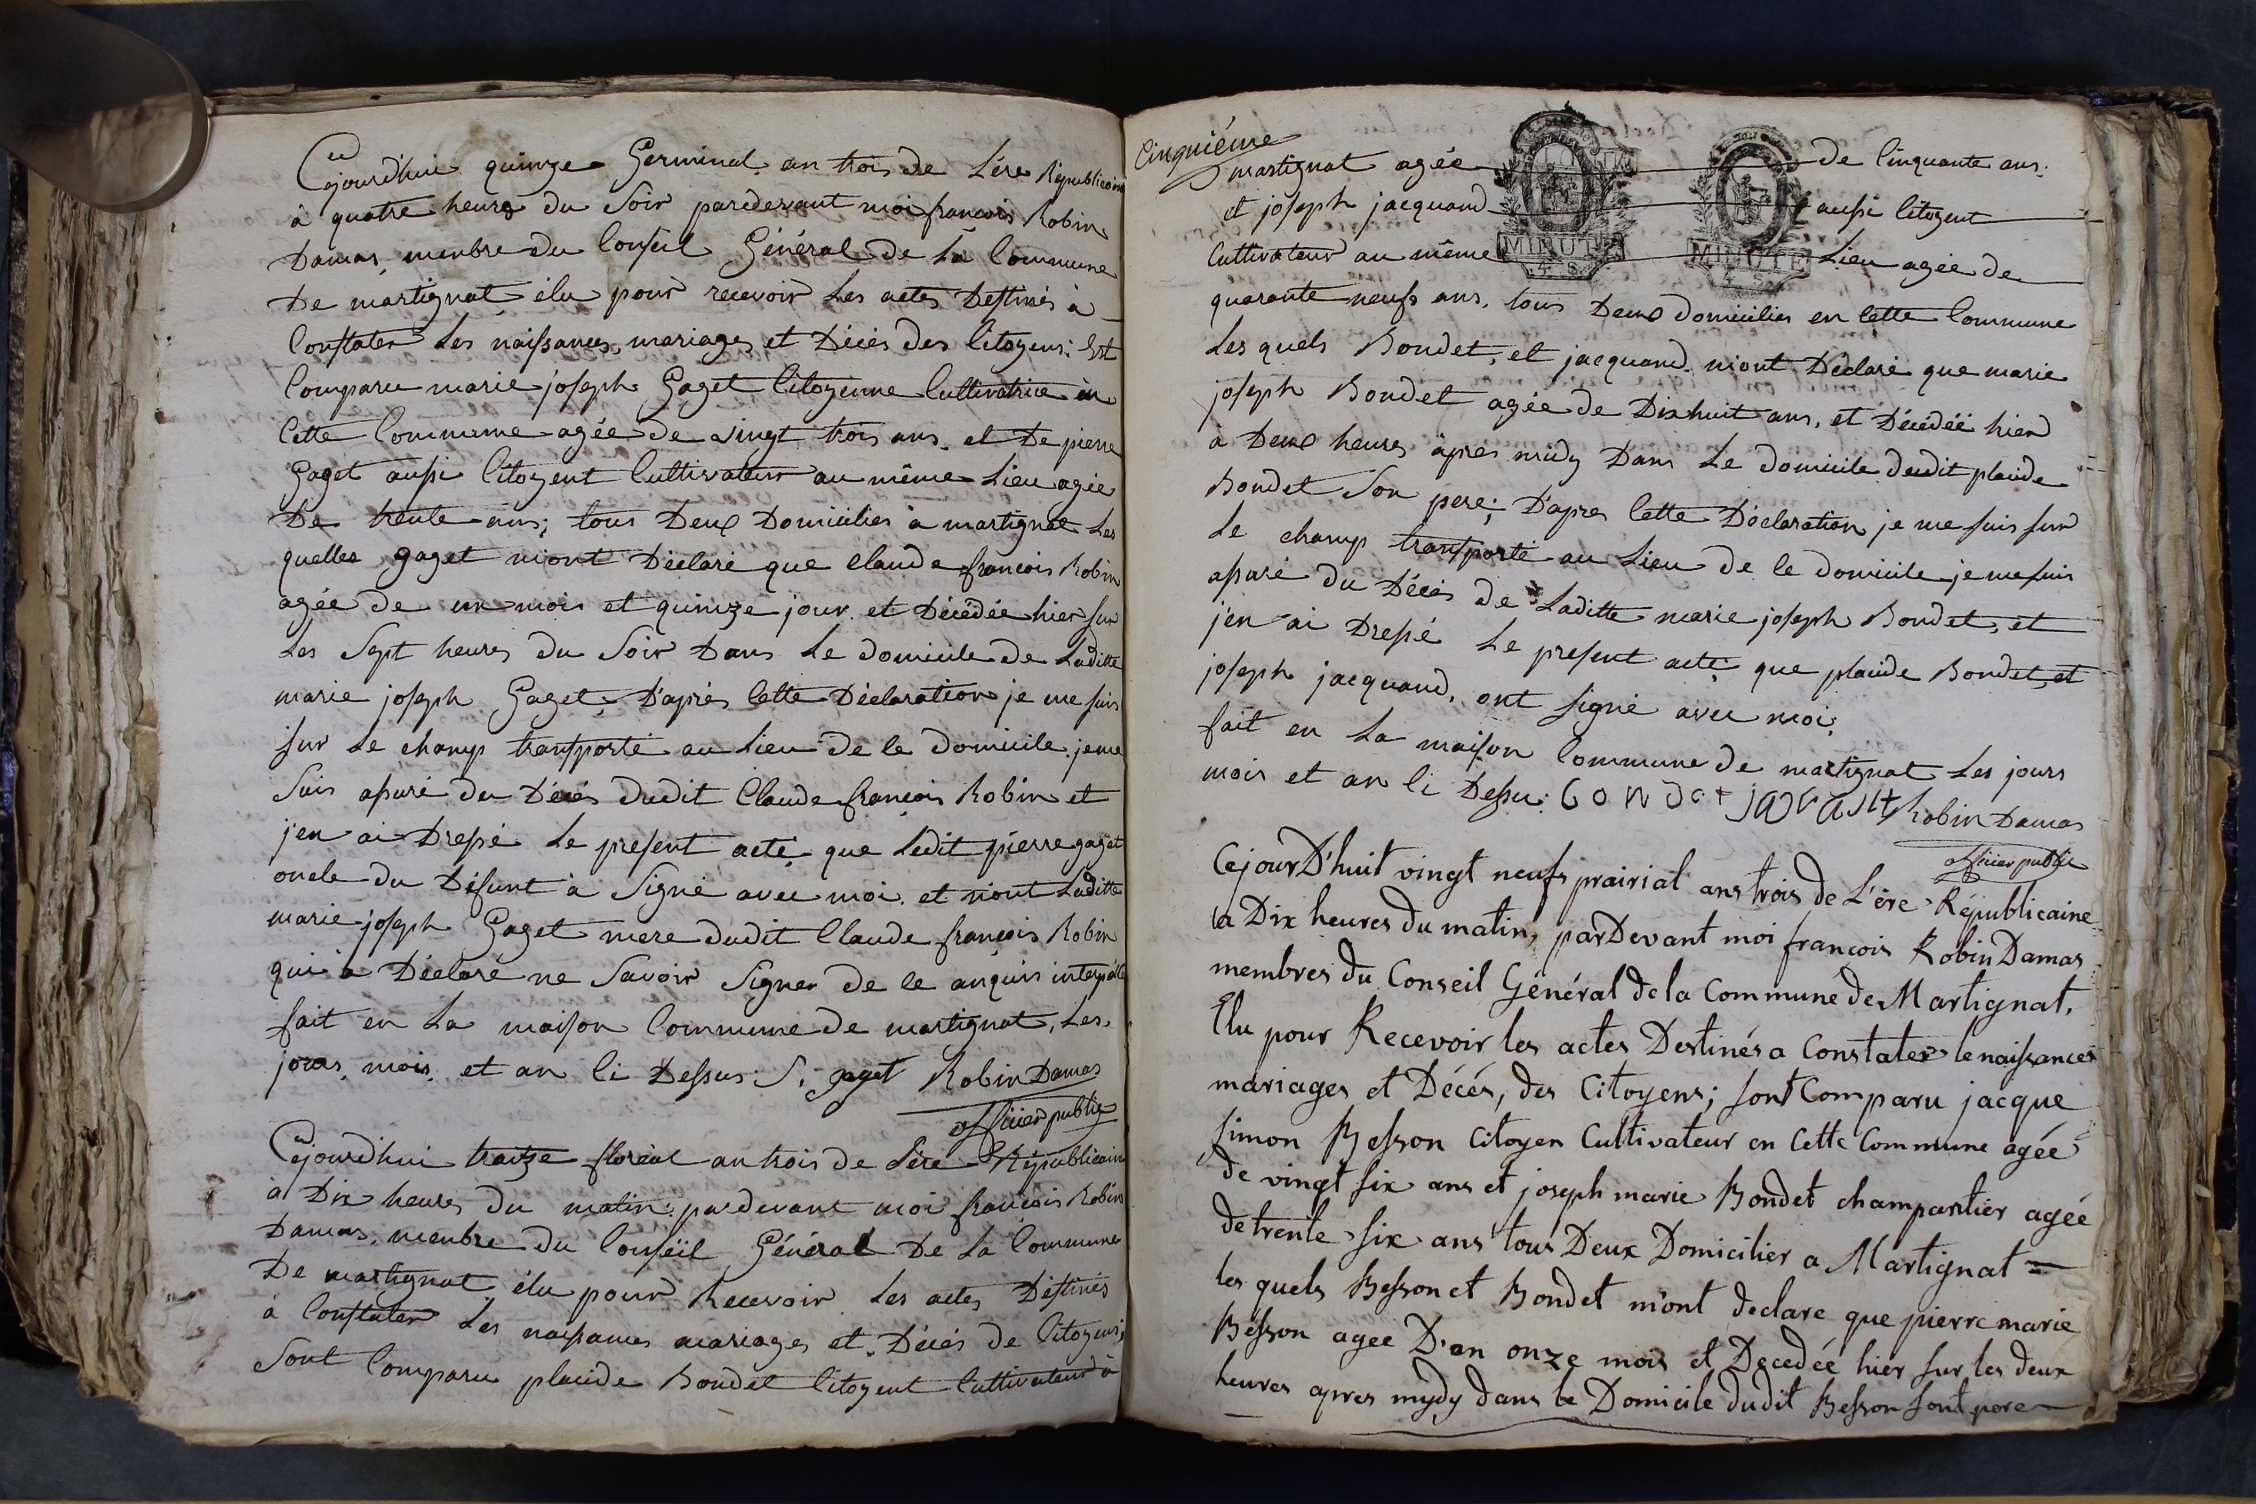 Cejourd'hui quinze Germinal an trois de L'ére Républicaine
à quatre heures du Soir pardevant moi françois Robin
Damas, menbre du Conseil Général de La Commune
De martignat élu pour recevoir Les actes Destinés à
Constater Les naissances, mariages et Décés des Citoyens: Est
Comparu marie joseph Gaget Citoyenne Cultivatrice en
Cette Commune agée de vingt trois ans. et De pierre
Gaget aussi Citoyent Cultivateur au même Lieu agée
De trente ans; tous Deux Domiciliés à martignat Les
quelles gaget m'ont Déclaré que Claude françois Robin
agée de un mois et quinze jour. et Décédée hier sur
Les Sept heures du Soir Dans Le domicile de Laditte
marie joseph Gaget; D'aprés Cette Déclaration je me suis
sur Le champ transporté au Lieu de ce domicile je me
Suis assuré du Décés dudit Claude françois Robin et
j'en ai Dressé Le présent acte que Ledit pierre gaget
oncle du Défunt à Signé avec moi. et n'ont Laditte
marie joseph Gaget mere dudit Claude françois Robin
qui à Déclaré ne Savoir Signer de ce anquis interpéllé
fait en La maison Commune de martignat, Les
jours, mois, et an Ci Dessus. S. gaget Robin Damas
officier public
Cejourd'hui traize floréal an trois de L'ére Républicain
à Dix heures du matin pardevant moi françois Robin
Damas, menbre du Conséil Général De La Commune
De martignat élu pour Recevoir Les actes Déstinés
à Constater Les naissances mariages et Décés de Citoyens;
Sont Comparu placide Bondet Citoyent Cultivateur à
Cinquiéme
martignat agée de Cinquante ans.
et joseph jacquand aussi Citoyent
Cultivateur au même Lieu agée de
MINUTE MINUTE
4. S. 4 S.
quarante neufs ans. tous Deux domiciliés en Cette Commune
Les quels Bondet, et jacquand m'ont Déclaré que marie
joseph Bondet agée de Dixhuit ans, et Décédée hier
à Deux heures äprés midy Dans Le domicile dudit placide
Bondet Son pere; D'apres Cette Déclaration je me suis sur
Le champ transporté au Lieu de ce domicile je me suis
assuré du Décés de Laditte marie joseph Bondet, et
j'en ai Dressé Le present acte que placide Bondet, et
joseph jacquand, ont signé avec moi.
fait en La maison Commune de martignat Les jours
mois et an Ci Dessu: Robin Damas
officier public
Cejour D'huit vingt neufs prairial ans trois de L'ére Républicaine
a Dix heures du matin, par Devant moi françois Robin Damas
membres du Conseil Général de la Commune de Martignat,
Elu pour Recevoir les actes Destinés a Constater le naissances
mariages et Décés, des Citoyens; sont Comparu jacque
simon Besson Citoyen Cultivateur en Cette Commune agée
de vingt six ans et joseph marie Bondet champantier agée
de trente six ans tous Deux Domicilier a Martignat =
les quels Besson et Bondet m'ont declare que pierre marie
Besson agee D'an onze mois et Decedée hier sur les deux
heures apres mydy dans le Domicile dudit Besson sont pere